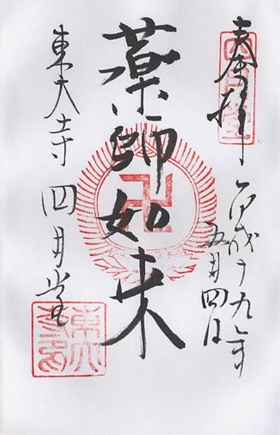 奉拝
平成十九年
五月四日
薬師如来
東大寺 四月堂